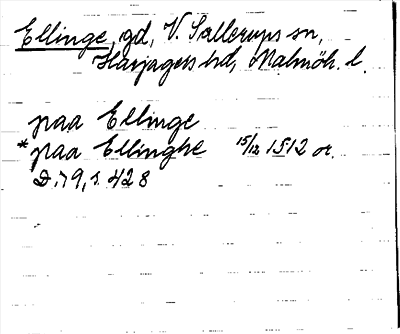 Ellinge, gd, V. Sallerups sn,
Harjagers hd, Malmöh. l.
paa Ellinge
* paa Ellinghe 15/12 1512 or.
D. 79, s. 428